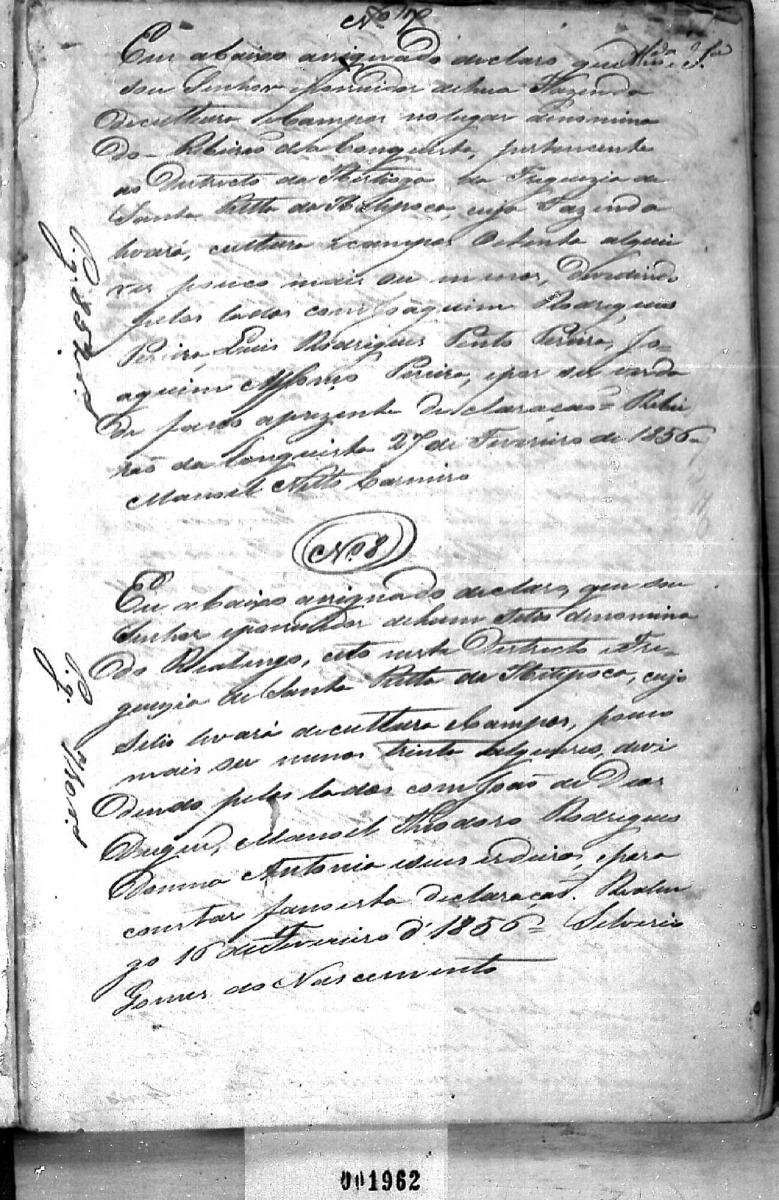 Nº 7
Eu abaixo assignado declaro que
sou Senhor e possuidor de hua Fazenda
de cultura e Campos no lugar denomina
do Ribeirão da Conquista, pertencente
ao Destricto da Ibertioga da Freguezia de
Santa Ritta da Ibitipoca, cuja Fazenda
levará, cultura e campos Oitenta alquei
res pouco mais ou menos, devedindo
pelos lados com Joaquim Rodrigues
Pereira, Luis Rodrigues Pinto Pereira, Jo-
aquim Affonço Pereira, e por ser verda
de faço a prezente declaração = Ribei
rão da Conquista 27 de Fevereiro de 1856 =
Manoel Netto Carneiro
Nº 8
Eu abaixo assignado declaro, que sou
Senhor e possuidor de hum Setio denomina
do Realengo, cito neste Destricto e Fre-
guezia de Santa Ritta da Ibitipoca, cujo
Setio levará de cultura e Campos, pouco
mais ou menos trinta alqueires, devi
dindo pelos lados com João de Deos
Manoel Theodoro Rodrigues
Donna Antonia e seus erdeiros, e para
constar faço esta declaração. Realen
go 16 de Fevereiro d' 1856 = Silverio
Gomes do Nascemento
001962